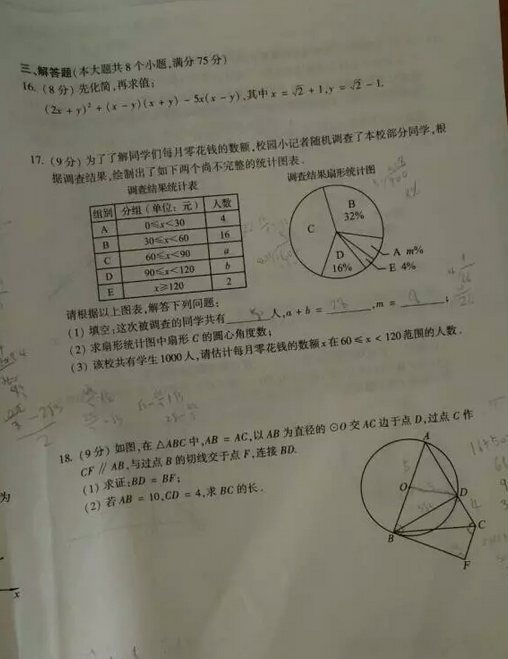 三、解答题(本大题共8个小题,满分75分)
16. (8分) 先化简,再求值:
(2x + y)² + (x - y)(x + y) - 5x(x - y),其中 x = √2 + 1,y = √2 - 1.
17. (9分) 为了了解同学们每月零花钱的数额,校园小记者随机调查了本校部分同学,根
据调查结果,绘制出了如下两个尚不完整的统计图表.
调查结果统计表
组别 分组(单位:元) 人数
A 0≤x<30 4
B 30≤x<60 16
C 60≤x<90 a
D 90≤x<120 b
E x≥120 2
调查结果扇形统计图
B
32%
C
A m%
E 4%
D
16%
请根据以上图表,解答下列问题:
(1) 填空:这次被调查的同学共有 人,a + b = ,m = ;
(2) 求扇形统计图中扇形 C 的圆心角度数;
(3) 该校共有学生1000人,请估计每月零花钱的数额 x 在 60 ≤ x < 120 范围的人数.
18. (9分) 如图,在 △ABC 中,AB = AC,以 AB 为直径的 ⊙O 交 AC 边于点 D,过点 C 作
CF ∥ AB,与过点 B 的切线交于点 F,连接 BD.
(1) 求证:BD = BF;
(2) 若 AB = 10,CD = 4,求 BC 的长.
A
O
D
B
C
F
为
x